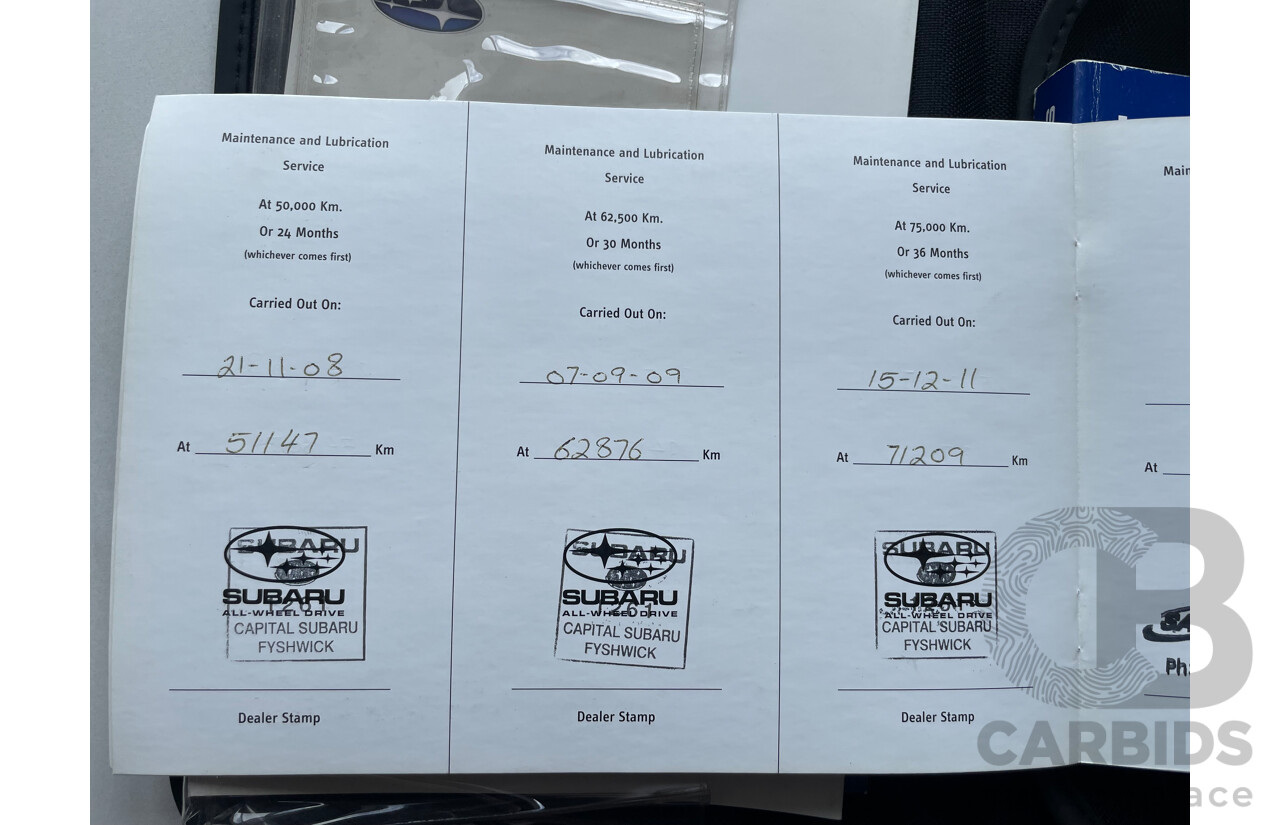 Maintenance and Lubrication
Service
At 50,000 Km.
Or 24 Months
(whichever comes first)
Carried Out On:
21-11-08
At 51147 Km
SUBARU
SUBARU
1261
ALL-WHEEL DRIVE
CAPITAL SUBARU
FYSHWICK
Dealer Stamp
Maintenance and Lubrication
Service
At 62,500 Km.
Or 30 Months
(whichever comes first)
Carried Out On:
07-09-09
At 62876 Km
SUBARU
SUBARU
1261
ALL-WHEEL DRIVE
CAPITAL SUBARU
FYSHWICK
Dealer Stamp
Maintenance and Lubrication
Service
At 75,000 Km.
Or 36 Months
(whichever comes first)
Carried Out On:
15-12-11
At 71209 Km
SUBARU
SUBARU
ALL-WHEEL DRIVE
CAPITAL SUBARU
FYSHWICK
Dealer Stamp
At
CB
CARBIDS